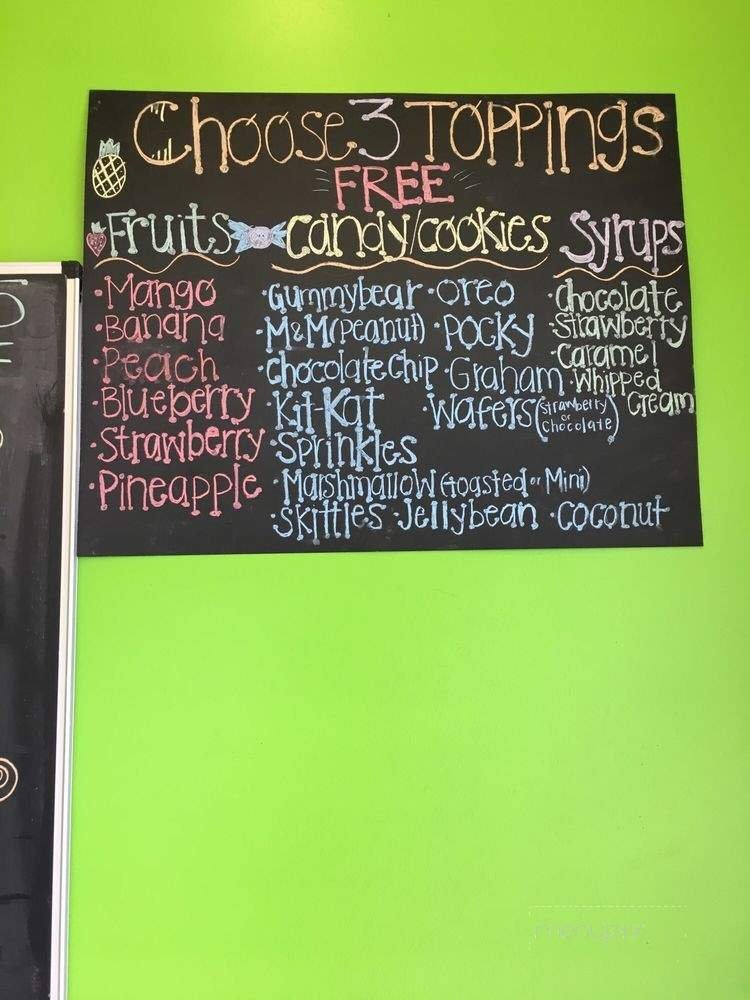 Choose 3 Toppings
FREE
Fruits
·Mango
·Banana
·Peach
·Blueberry
·Strawberry
·Pineapple
candy/cookies
·Gummybear ·Oreo
·M&M(Peanut) ·Pocky
·chocolate chip ·Graham
·Kit-Kat ·Wafers(Strawberry or chocolate)
·Sprinkles
·Marshmallow (toasted or Mini)
·Skittles ·Jellybean ·coconut
Syrups
·chocolate
·Strawberry
·caramel
·Whipped
cream